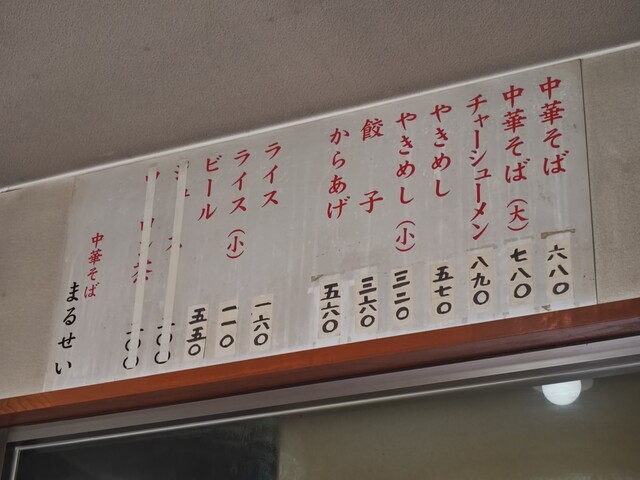 中華そば 六八〇
中華そば（大） 七八〇
チャーシューメン 八九〇
やきめし 五七〇
やきめし（小） 三二〇
餃子 三六〇
からあげ 五六〇
ライス 一六〇
ライス（小） 一一〇
ビール 五五〇
中華そば
まるせい